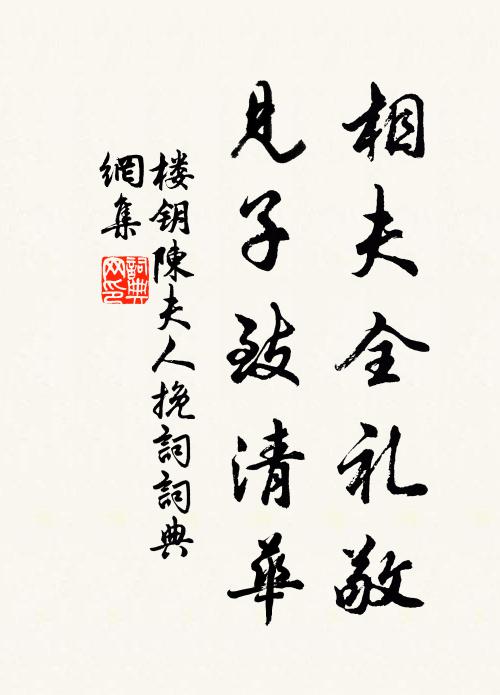 相夫全礼敬
见子致清華
楼钥陳夫人挽詞詞典
網集
詞典网印